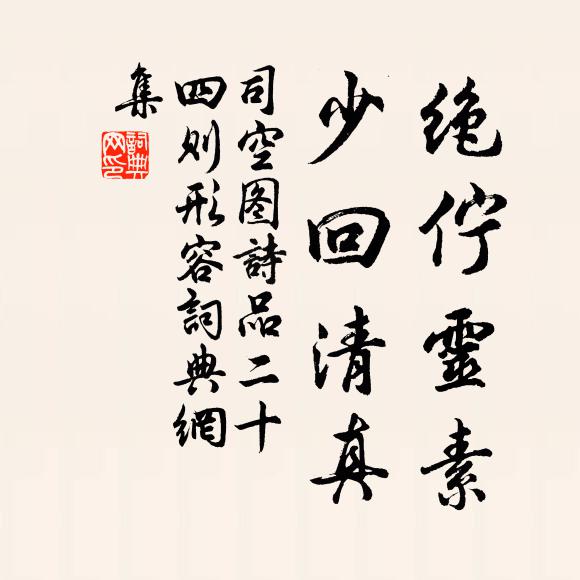 绝佇靈素
少回清真
司空图詩品二十
四则形容詞典網
集
詞典
网印